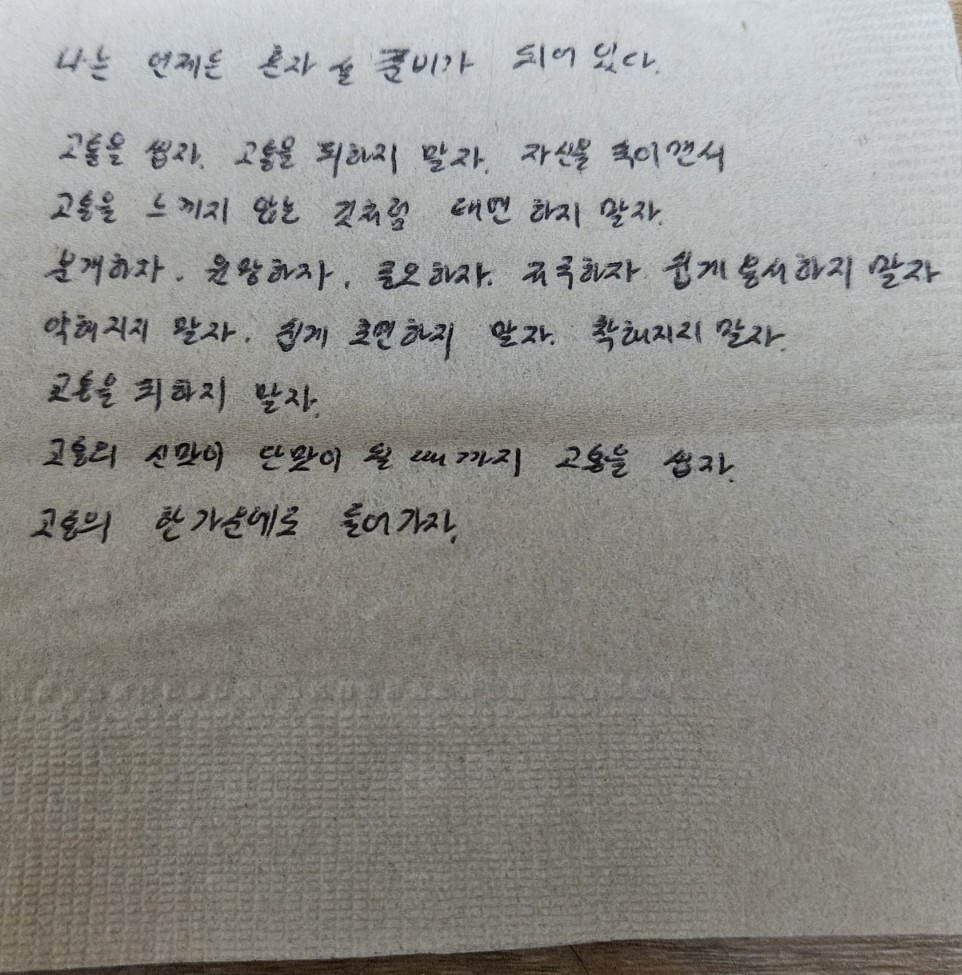 나는 언제든 혼자 설 준비가 되어 있다.
고통을 씹자. 고통을 피하지 말자. 자신을 속이면서
고통을 느끼지 않는 것처럼 대면 하지 말자.
분개하자. 원망하자. 증오하자. 저주하자 쉽게 용서하지 말자
약해지지 말자. 쉽게 초연하지 말자. 착해지지 말자.
고통을 피하지 말자.
고통의 신맛이 단맛이 될 때까지 고통을 씹자.
고통의 한가운데로 들어가자.